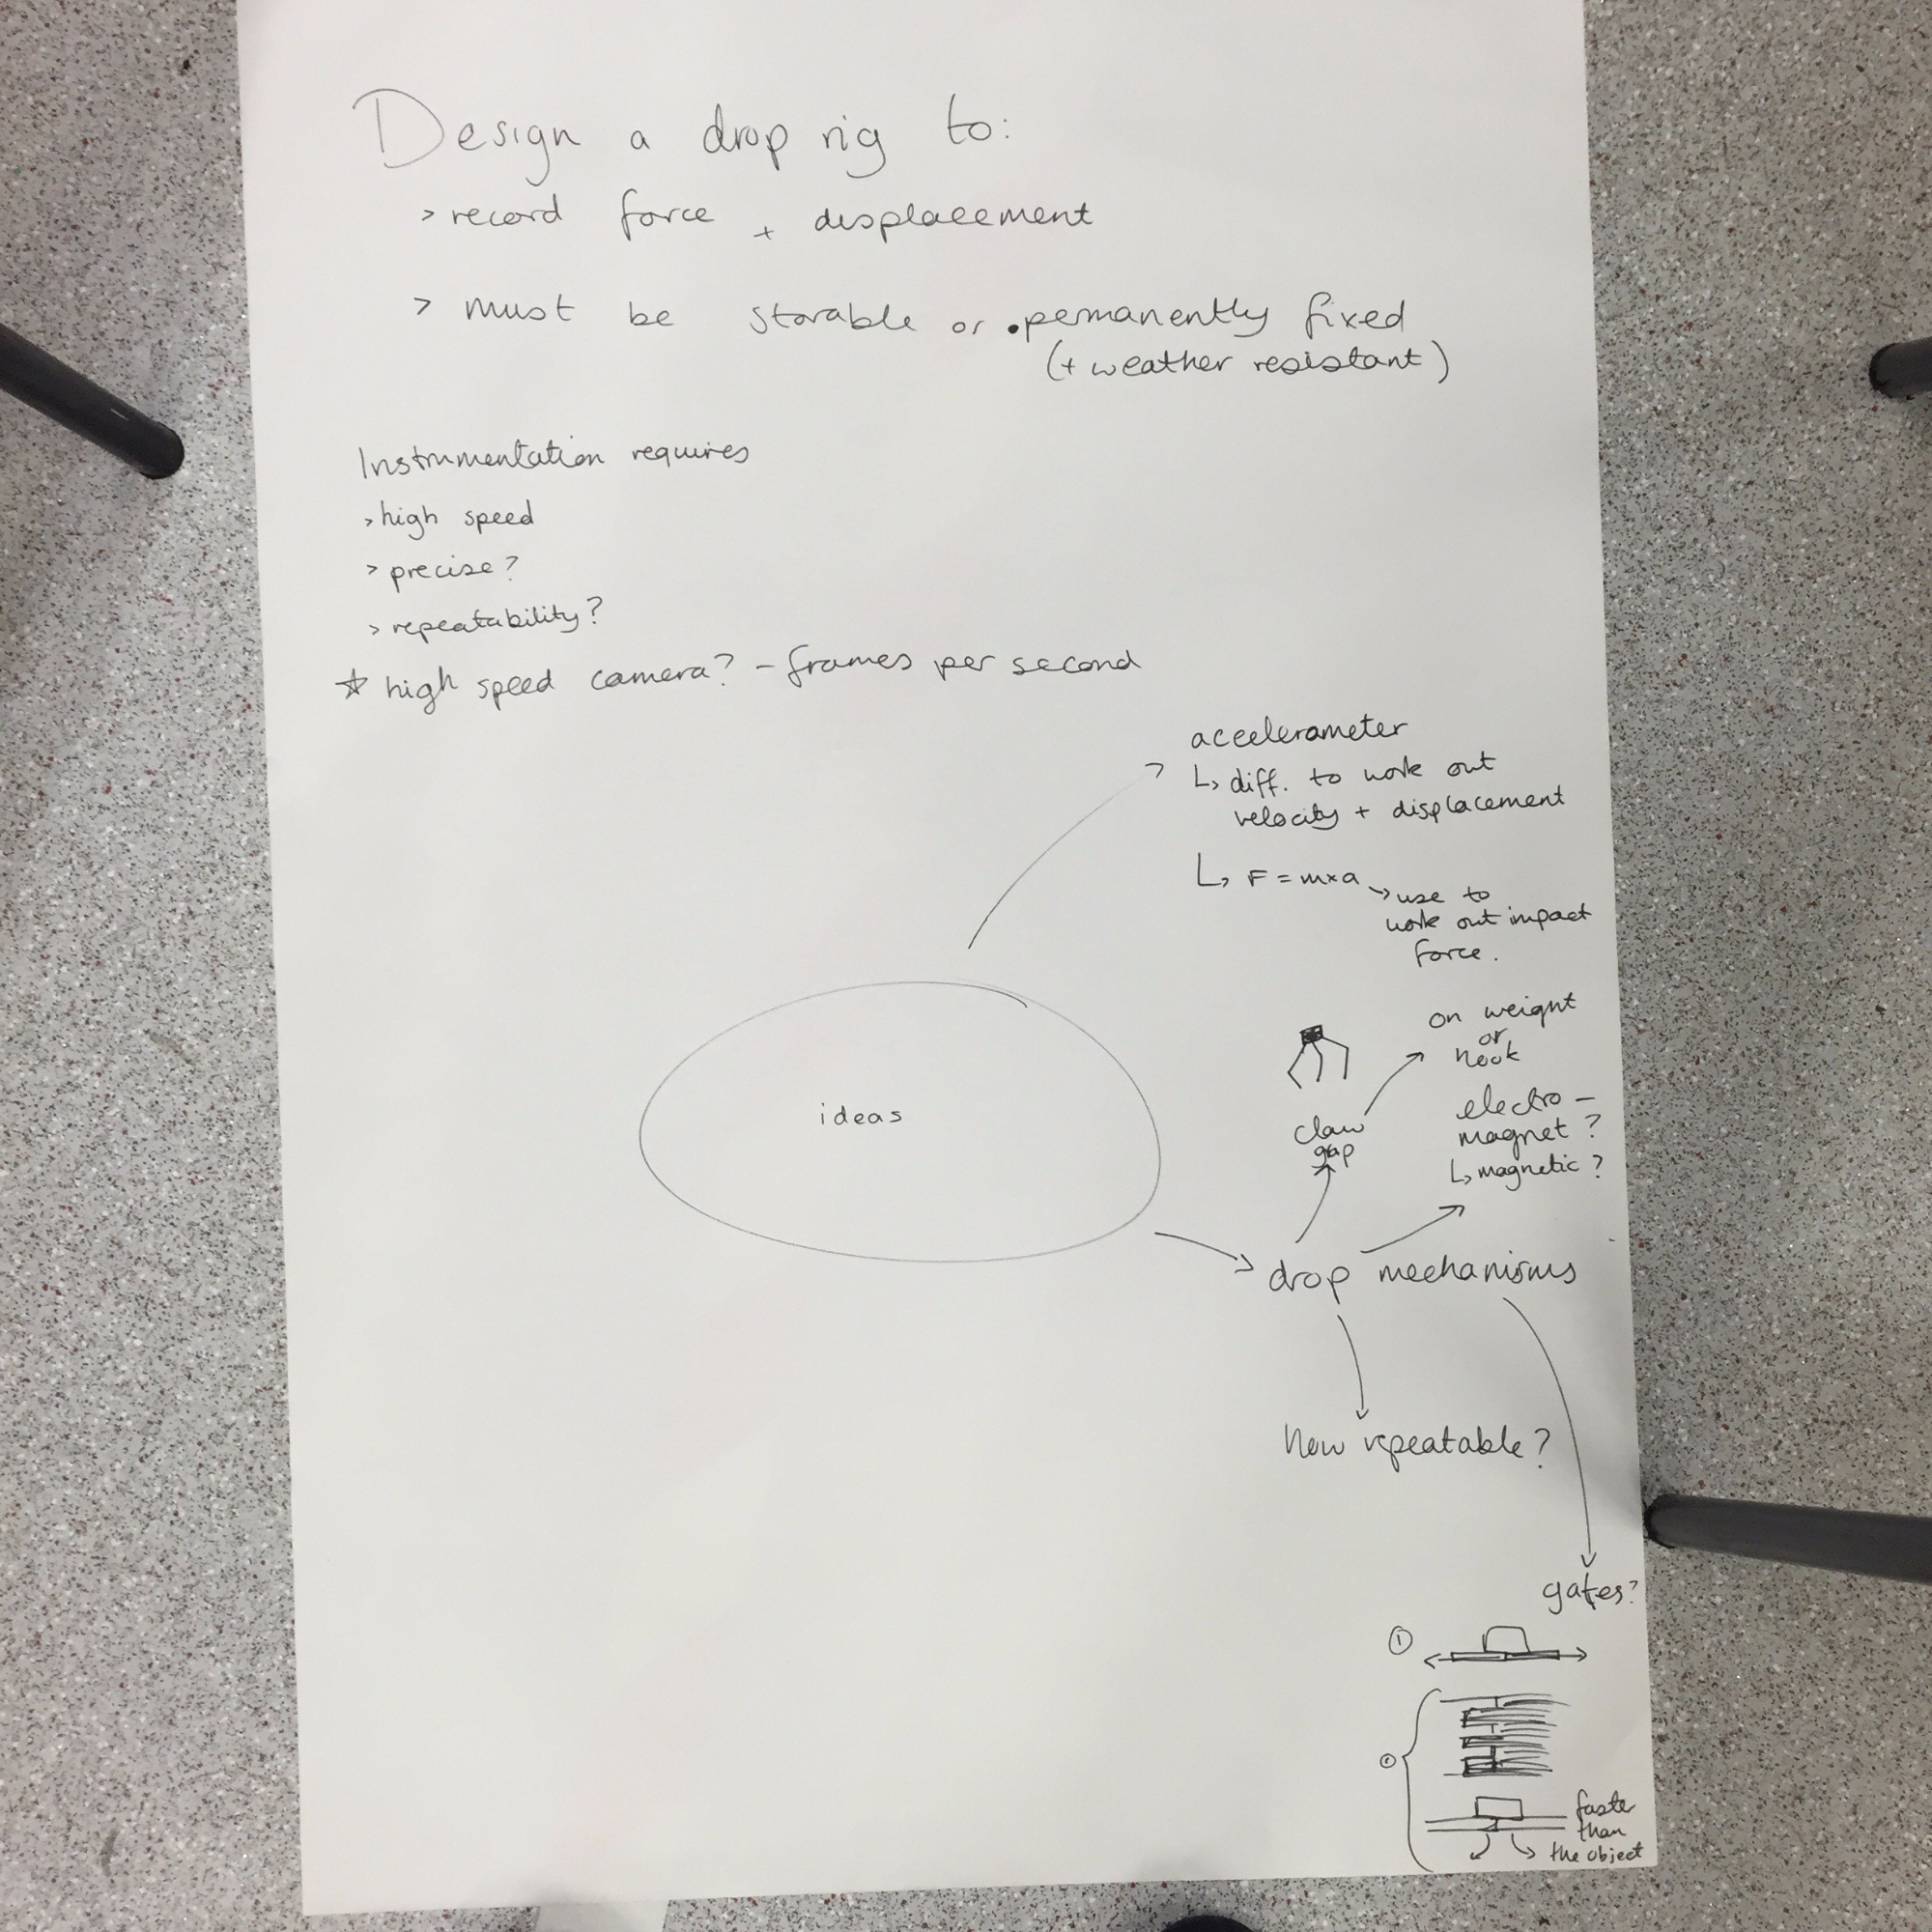 Design a drop rig to:
> record force + displacement
> must be storable or • permanently fixed
(+ weather resistant)
Instrumentation requires
> high speed
> precise?
> repeatability?
☆ high speed camera? - frames per second
accelerometer
↳ diff. to work out
velocity + displacement
↳ F = m×a → use to
work out impact
force.
on weight
or
hook
claw
gap
electro-
magnet?
↳ magnetic?
ideas
drop mechanisms
how repeatable?
gates?
①
②
faster
than
the object